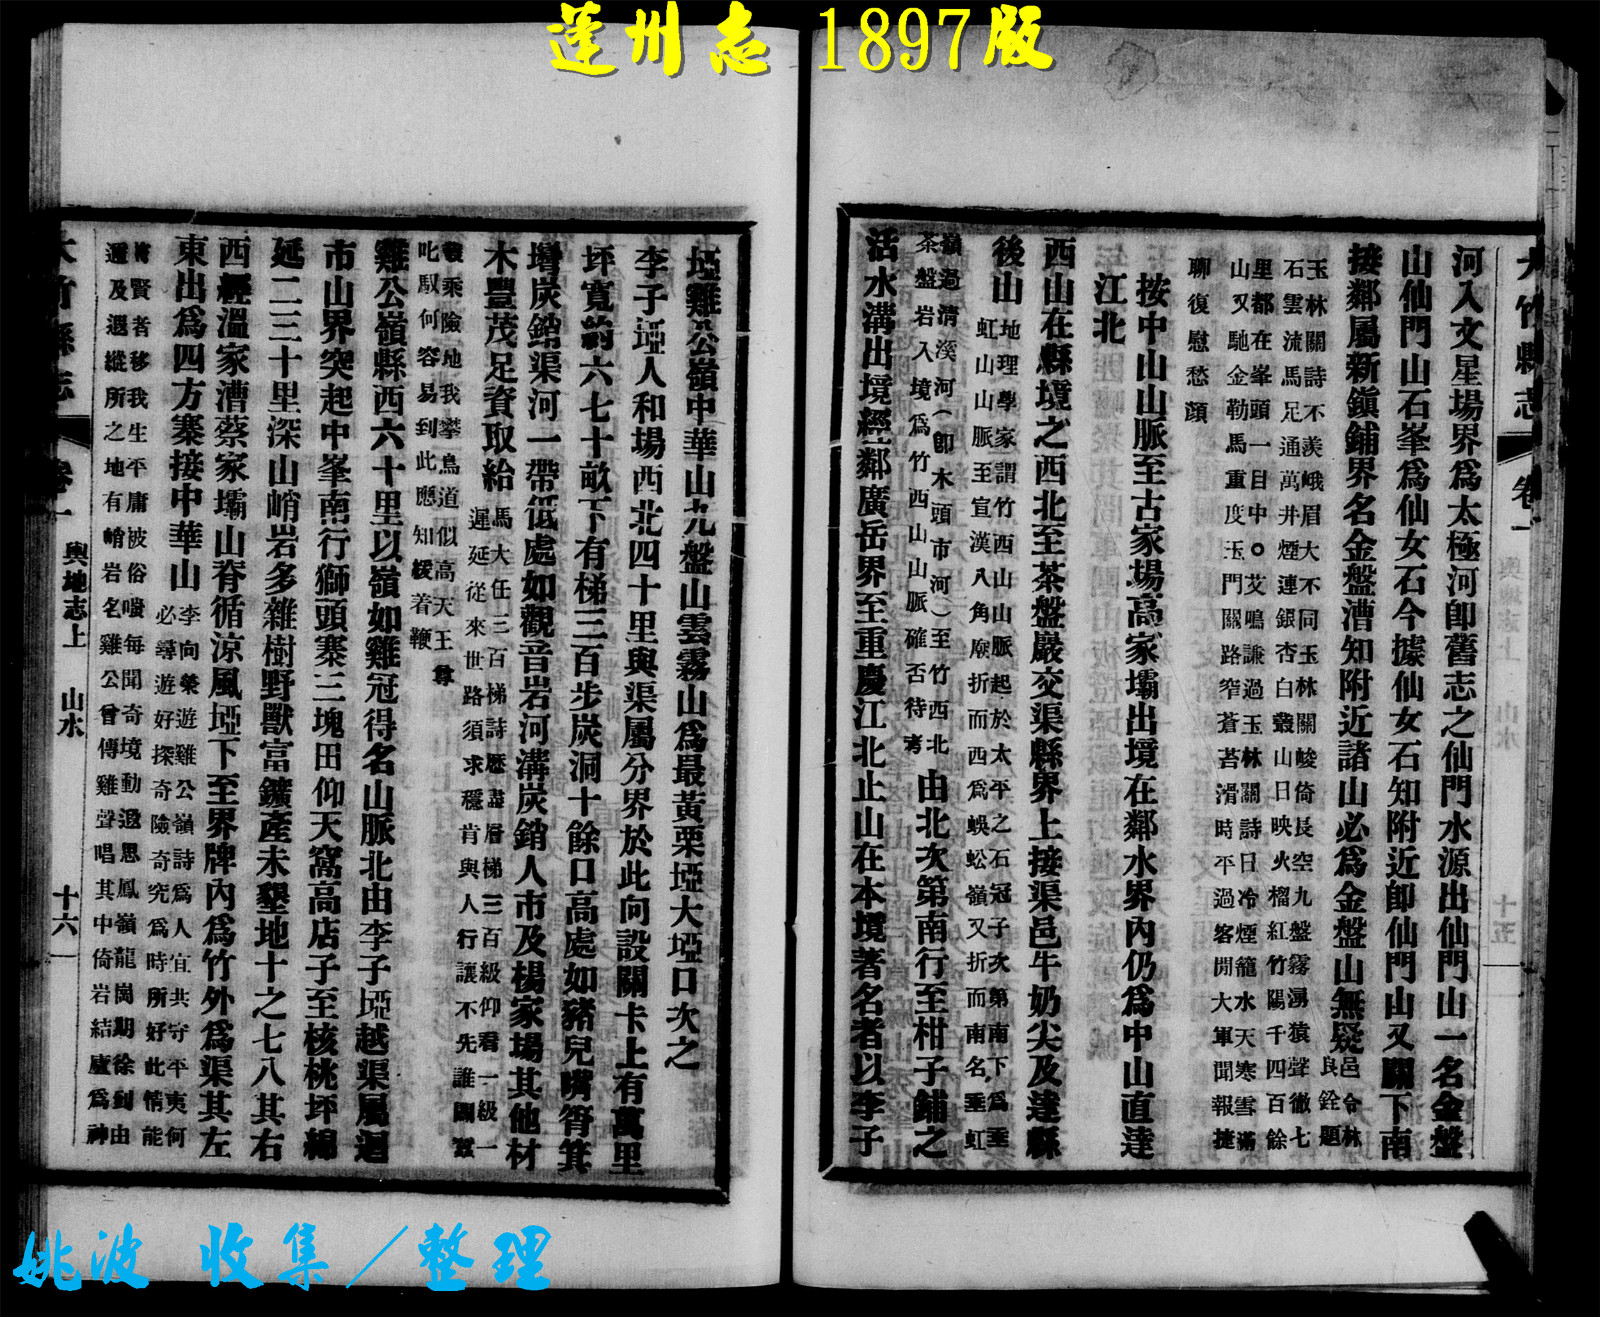 蓬州志 1897版
大竹縣志 卷一 輿地志上 山水 十五
河入文星場界爲太極河卽舊志之仙門水源出仙門山一名金盤
山仙門山石峯爲仙女石今據仙女石知附近卽仙門山又關下南
接鄰屬新鎭鋪界名金盤漕知附近諸山必爲金盤山無疑邑令林良銓題
玉林關詩不羨峨眉大不同玉林關峻倚長空九盤霧湧猿聲徹七
石雲流馬足通萬井煙連銀杏白叢山日映火榴紅竹陽千四百餘
里都在峯頭一目中○艾鳴謙過玉林關詩日冷煙籠水天寒雪滿
山又馳金勒馬重度玉門關路窄蒼苔滑時平過客閒大軍聞報捷
聊復慰愁顔
按中山山脈至古家場高家壩出境在鄰水界內仍爲中山直達
江北
西山在縣境之西北至茶盤巖交渠縣界上接渠邑牛奶尖及達縣
後山地理學家謂竹西山山脈起於太平之石冠子次第南下爲垂
虹山山脈至宣漢八角廟折而西爲蜈蚣嶺又折而南名垂虹
嶺過淸溪河(卽木頭市河)至竹西北
茶盤岩入境爲竹西山山脈確否待考
由北次第南行至柑子鋪之
活水溝出境經鄰廣岳界至重慶江北止山在本境著名者以李子
埡雞公嶺中華山九盤山雲霧山爲最黃栗埡大埡口次之
李子埡人和場西北四十里與渠屬分界於此向設關卡上有萬里
坪寬約六七十畝下有梯三百步炭洞十餘口高處如豬兒嘴筲箕
塆炭銷渠河一帶低處如觀音岩河溝炭銷人市及楊家場其他材
木豊茂足資取給馬大任三百梯詩歷盡層梯三百級仰看一級一
遲延從來世路須求穩肯與人行讓不先誰闢蠶
叢乘險地我攀鳥道似高天王尊
叱馭何容易到此應知緩着鞭
雞公嶺縣西六十里以嶺如雞冠得名山脈北由李子埡越渠屬迴
市山界突起中峯南行獅頭寨三塊田仰天窩高店子至核桃坪綿
延二三十里深山峭岩多雜樹野獸富鑛產未墾地十之七八其右
西經溫家漕蔡家壩山脊循涼風埡下至界牌內爲竹外爲渠其左
東出爲四方寨接中華山李向榮遊雞公嶺詩爲人宜共守平夷何
必尋遊好探奇險奇究爲時所好此情能
將賢者移我生平庸被俗嗤每聞奇境動遐思鳳嶺龍崗期徐到由
邇及遐縱所之地有峭岩名雞公曾傳雞聲唱其中倚岩結廬爲神
大竹縣志 卷一 輿地志上 山水 十六
姚波 收集/整理